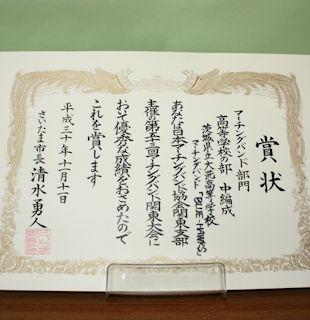 賞状
マーチングバンド部門
高等学校の部 中編成
茨城県立大洗高等学校
マーチングバンド「BLUE-HAWKS」
あなたは日本マーチングバンド協会関東支部
主催の第五十三回マーチングバンド関東大会に
おいて優秀な成績をおさめたので
これを賞します
平成三十年十一月十一日
さいたま市長 清水勇人